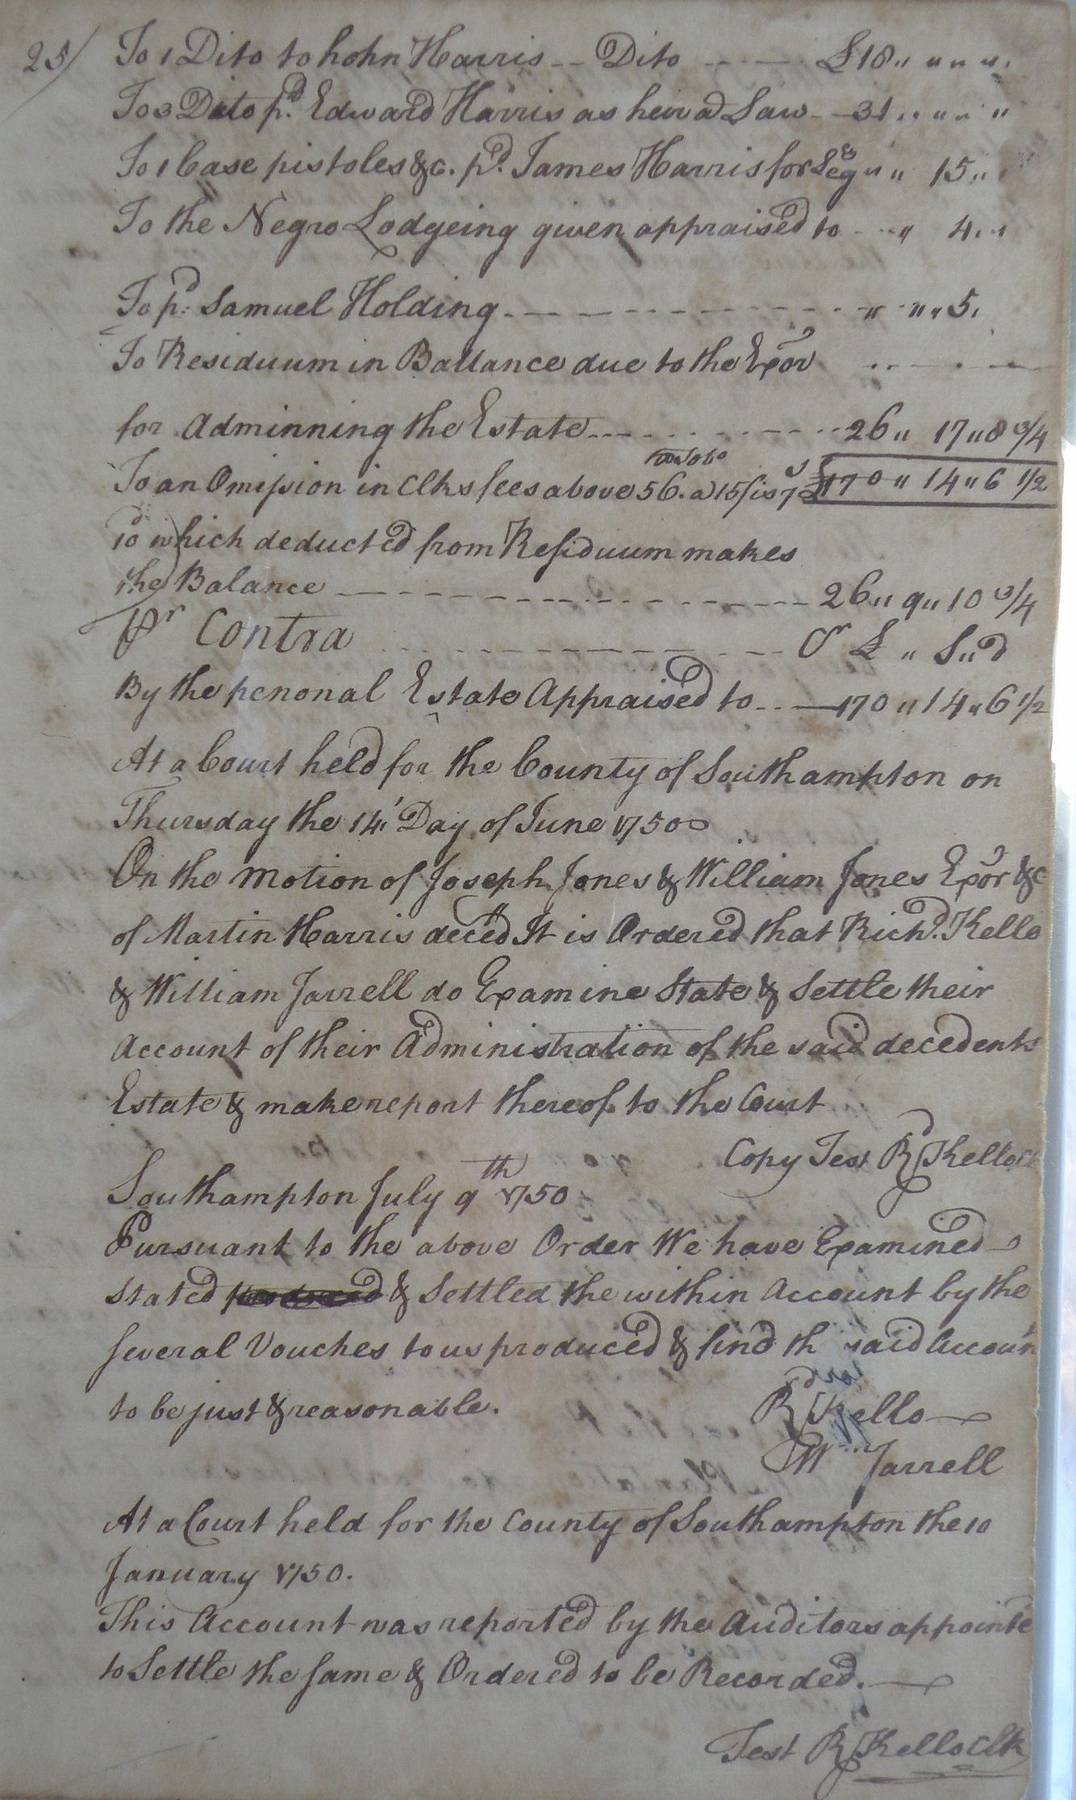 25/ To 1 Dito to hohn Harris -- Dito ---- £18 " " " "
To 3 Dito pd. Edward Harris as heir a Law -- 31 " " " "
To 1 Case pistoles &c. pd. James Harris for Leg " " 15 " "
To the Negro Lodgeing given appraised to --- " 4 " "
To pd: Samuel Holding ------------ " " " 5.
To Residuum in Ballance due to the Exor
for Adminning the Estate ------------ 26 " 17 " 8 3/4
To an Omission in Clks fees above 56. a 15/ is 7 £170 " 14 " 6 1/2
10 which deducted from Residuum makes
the Balance ------------ 26 " 9 " 10 3/4
Pr Contra ------------ Cr £ " S " d
By the personal Estate Appraised to -- 170 " 14 " 6 1/2
At a Court held for the County of Southampton on
Thursday the 14' Day of June 1750
On the motion of Joseph Jones & William Jones Exor &c
of Martin Harris deced It is Ordered that Richd. Kello
& William Jarrell do Examine State & Settle their
Account of their Administration of the said decedents
Estate & make report thereof to the Court
Copy Test Rd Kello Clk
Southampton July 9th 1750
Pursuant to the above Order We have Examined
Stated & Settled the within Account by the
several Vouches to us produced & find th said Accoun
to be just & reasonable. Rd Kello
Wm Jarrell
At a Court held for the County of Southampton the 10
January 1750.
This Account was reported by the Auditors appointe
to Settle the same & Ordered to be Recorded.
Test Rd Kello Clk